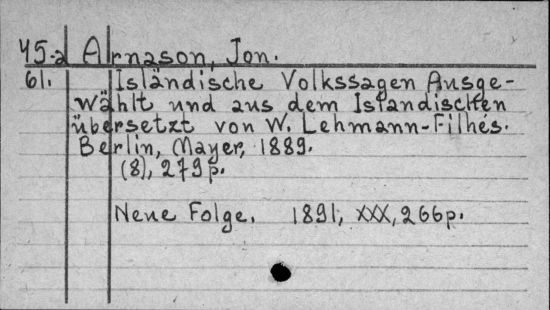 45.a Arnason, Jon.
61. Isländische Volkssagen Ausge-
wählt und aus dem Isländischen
übersetzt von W. Lehmann-Filhés.
Berlin, Mayer, 1889.
(8), 279p.
Neue Folge. 1891, XXX, 266p.